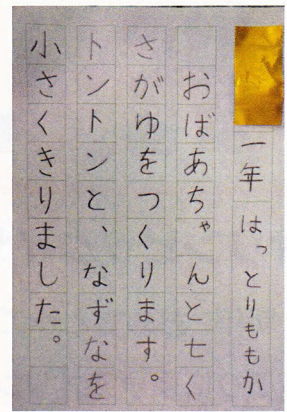 一年 はっとりももか
おばあちゃんと七く
さがゆをつくります。
トントンと、なずなを
小さくきりました。